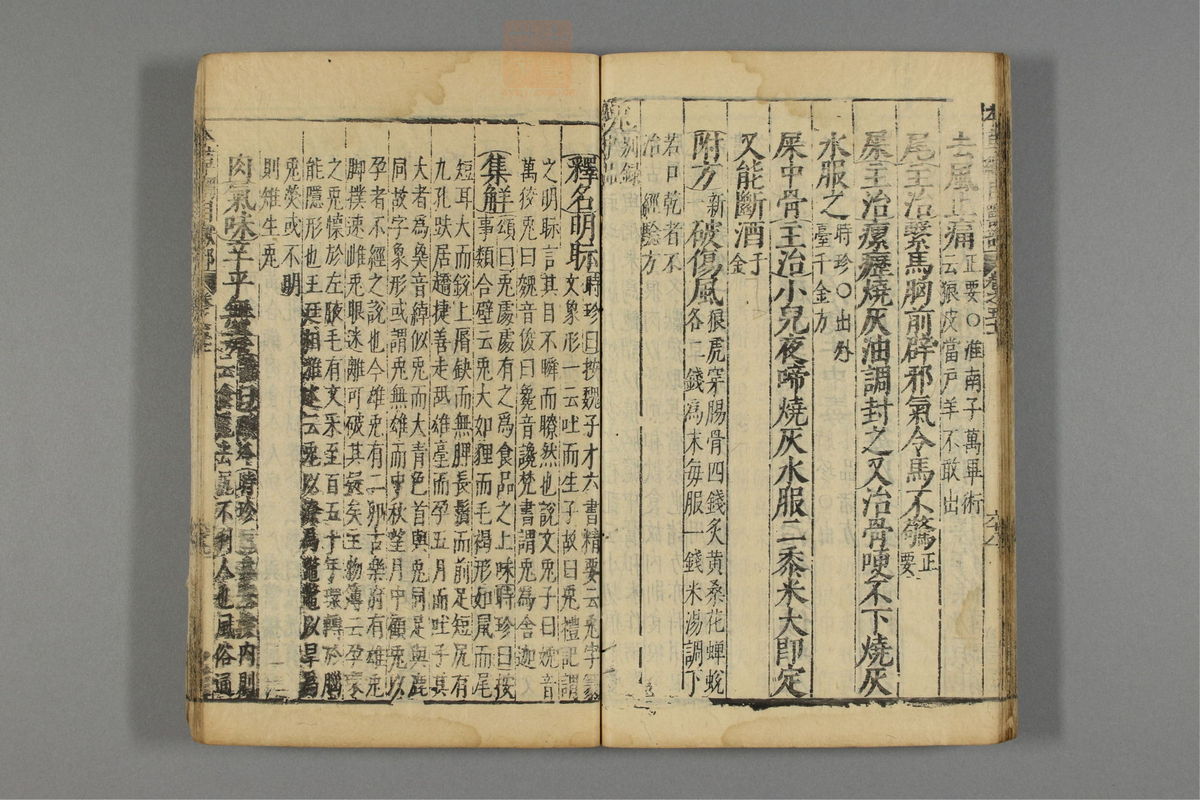 去風止痛正要○淮南子萬畢術
云狼皮當戶羊不敢出
尾主治繫馬胸前辟邪氣令馬不驚正
要
屎主治瘰癧燒灰油調封之又治骨哽不下燒灰
水服之時珍○出外
臺千金方
屎中骨主治小兒夜啼燒灰水服二黍米大即定
又能斷酒千
金
附方新一破傷風狼虎穿腸骨四錢炙黃桑花蟬蛻
各二錢為末每服一錢米湯調下
若口乾者不
治 經驗方
兔別錄
釋名明眎時珍曰按魏子才六書精要云兔字篆
文象形一云吐而生子故曰兔禮記謂
之明眎言其目不瞬而瞭然也說文兔子曰娩音
萬狡兔曰㕙音俊曰毚音讒梵書謂兔為舍迦
集解頌曰兔處處有之為食品之上味時珍曰按
事類合璧云兔大如貍而毛褐形如鼠而尾
短耳大而銳上唇缺而無脾長鬚而前足短尻有
九孔趺居趫捷善走舐雄毫而孕五月而吐子其
大者為㚟音綽似兔而大青色首與兔同足與鹿
同故字象形或謂兔無雄而中秋望月中顧兔以
孕者不經之說也今雄兔有二卵古樂府有雄兔
腳撲速雌兔眼迷離可破其疑矣王物簿云孕環
之兔懷於左腋毛有文采至百五十年環轉於腦
能隱形也王廷相雅述云兔以潦為鱉鱉以旱為
兔熒或不明
則雉生兔
肉氣味辛平無毒